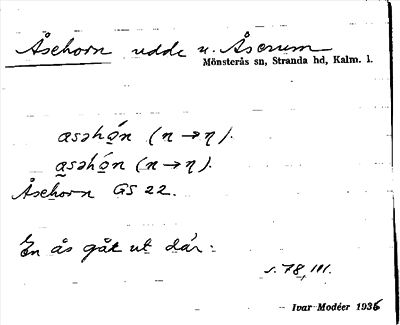 Åsehorn udde v. Åserum
Mönsterås sn, Stranda hd, Kalm. l.
asəhọ́n (n → η).
ạsəhọ́n (n → η).
Åsehorn GS 22.
En ås gåt ut där:
s. 78, 101.
Ivar Modéer 1936